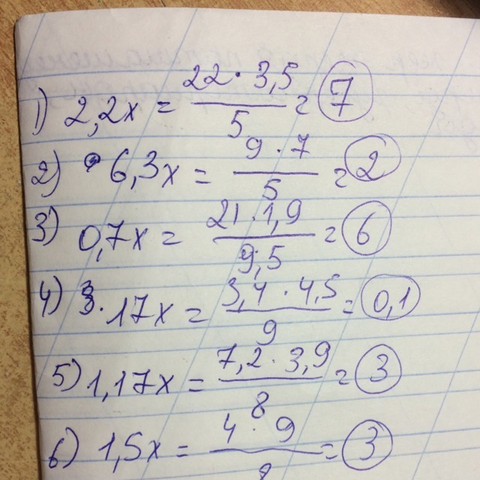 1) 2,2x = 22 · 3,5 / 5 = 7
2) 6,3x = 9 · 7 / 5 = 2
3) 0,7x = 21 · 1,9 / 9,5 = 6
4) 3 · 17x = 3,4 · 4,5 / 9 = 0,1
5) 1,17x = 7,2 · 3,9 / 8 = 3
6) 1,5x = 4 · 9 / = 3